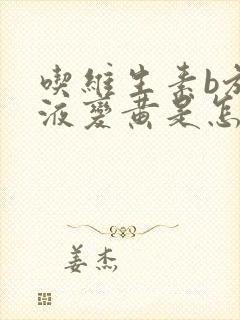 喫維生素b
液變黃是怎
姜杰